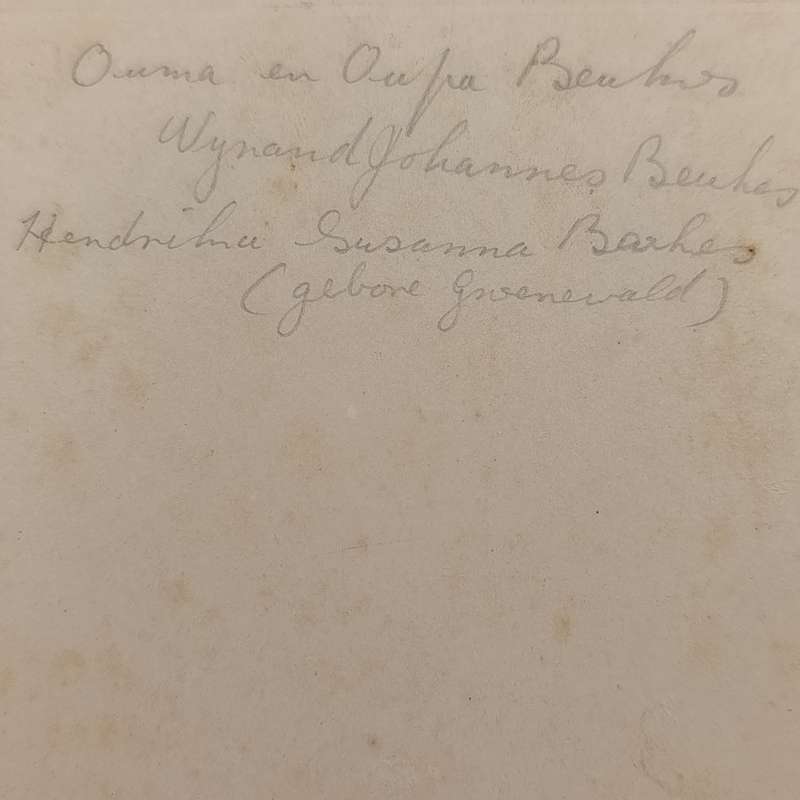 Ouma en Oupa Beukes
Wynand Johannes Beukes
Hendrika Susanna Beukes
(gebore Groenewald)